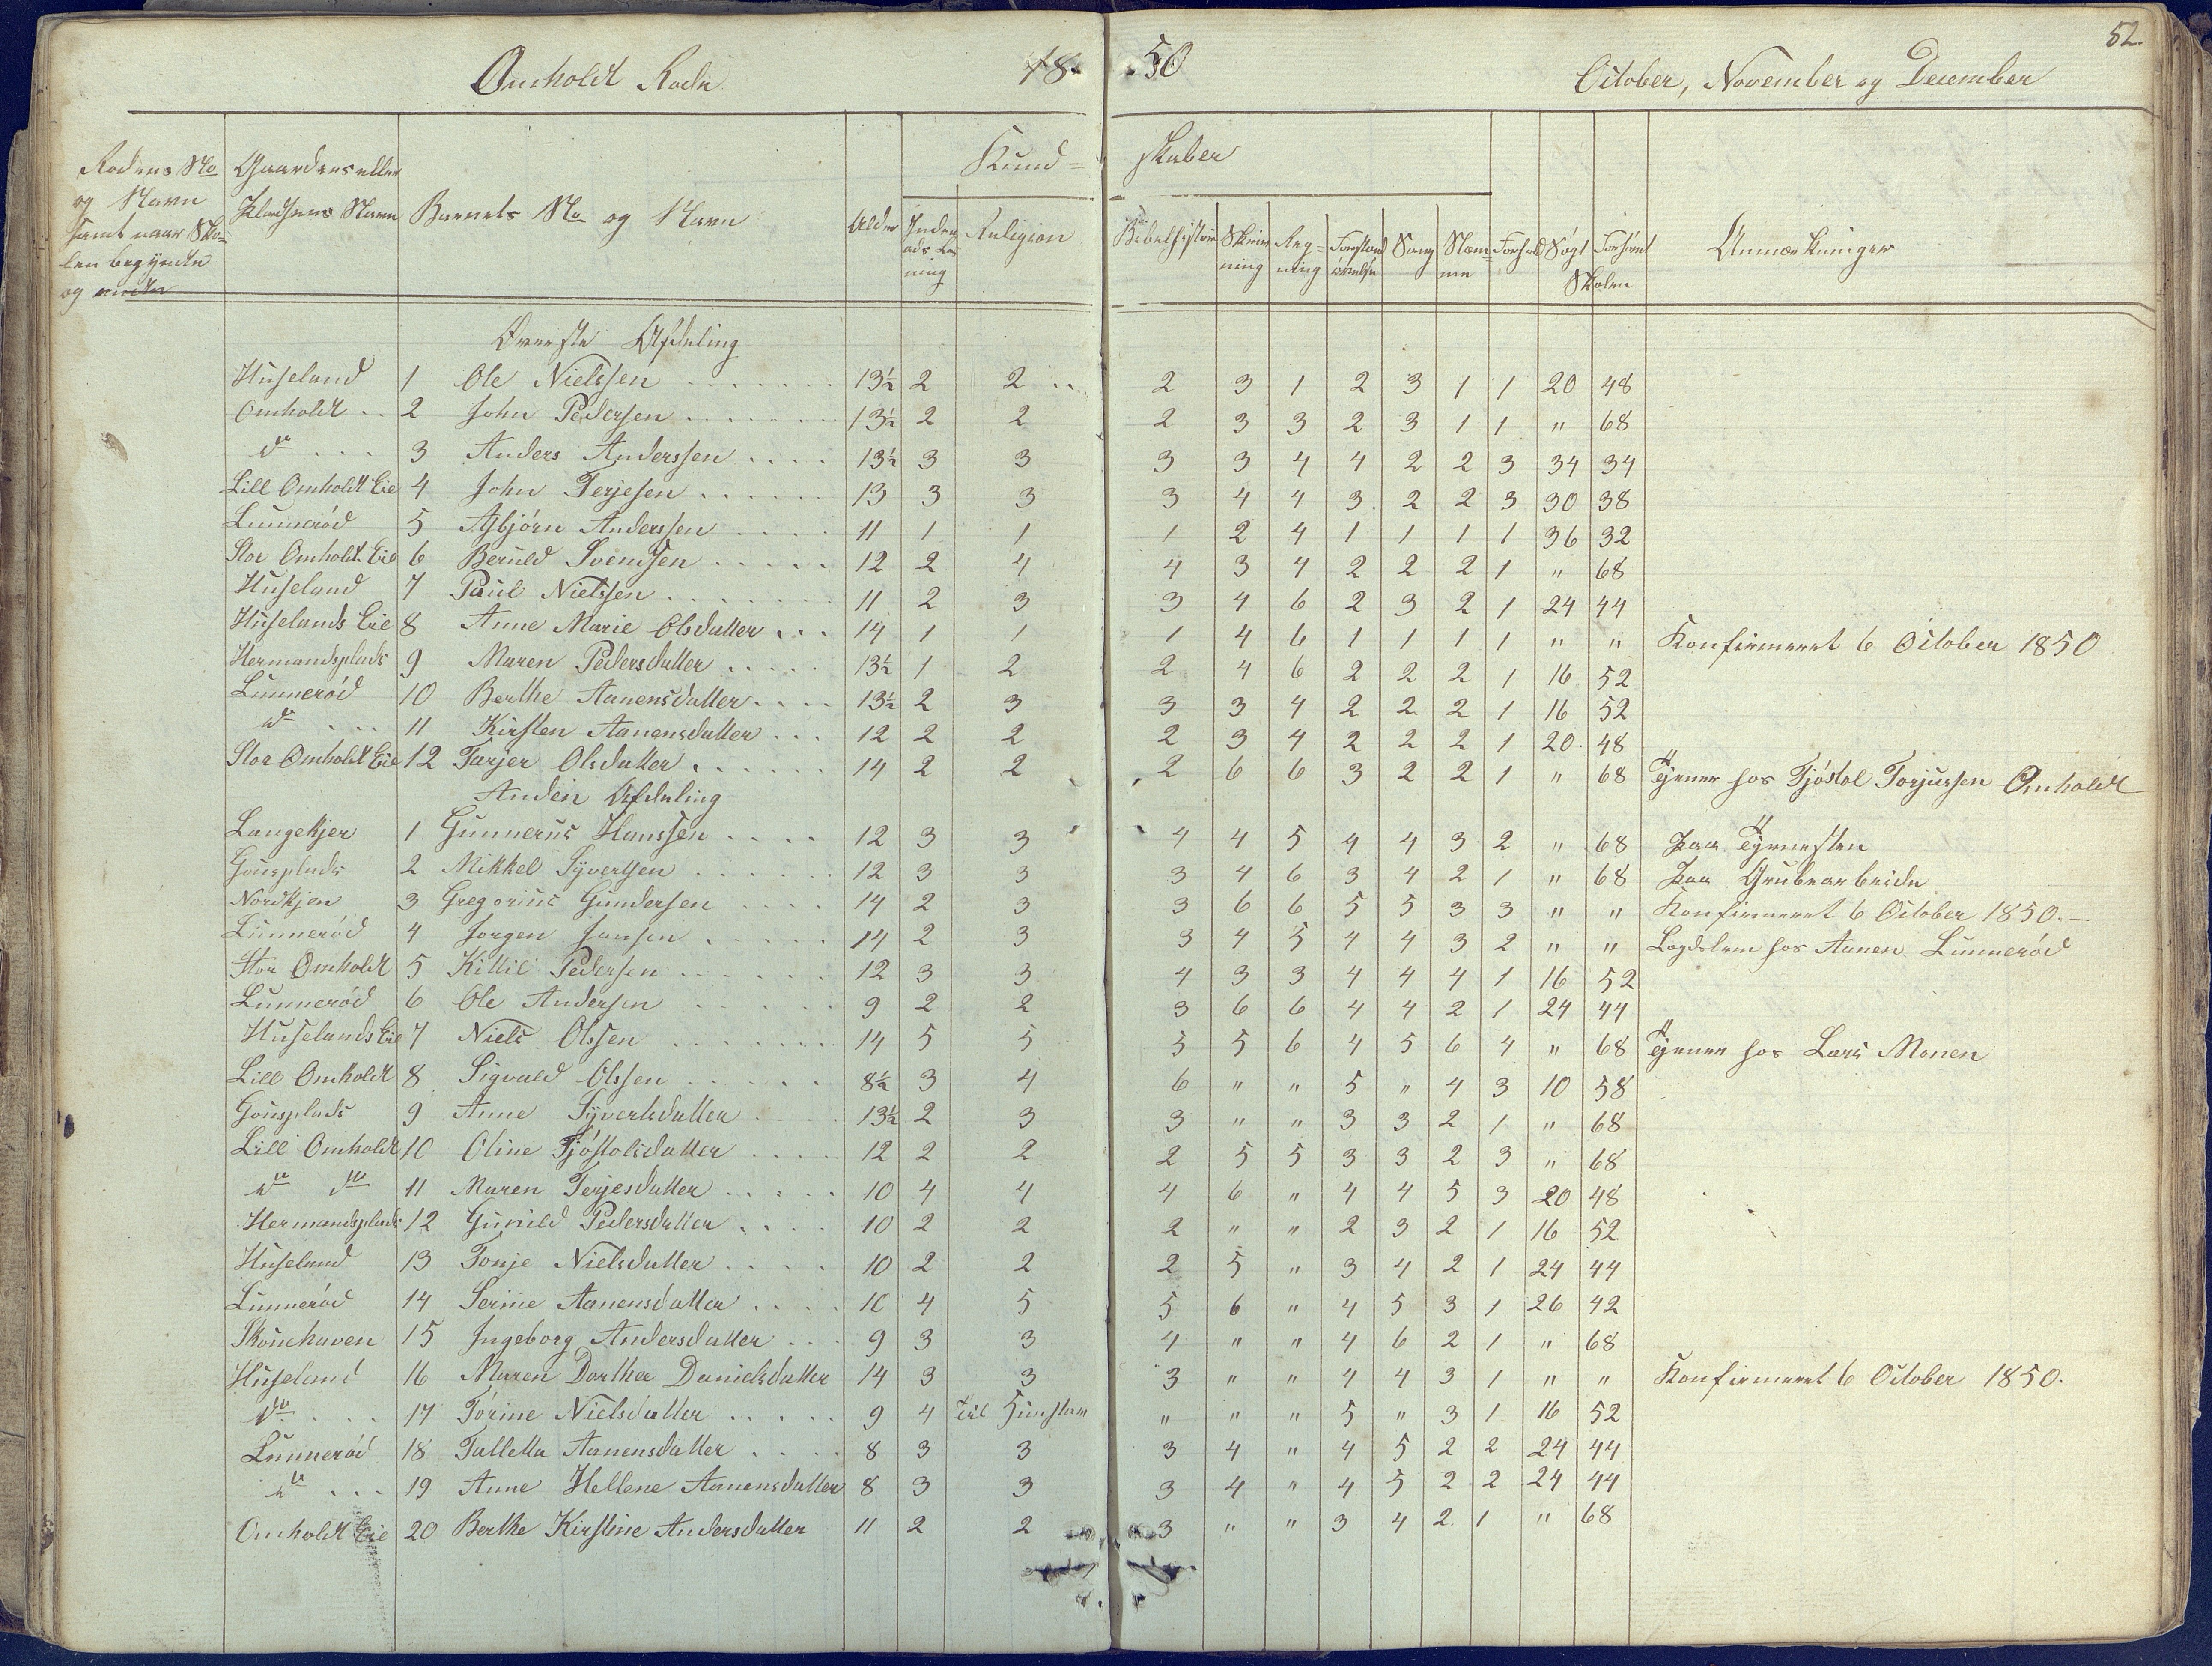 Omholdt Rode 1850 October, November og December 52.
Rodens No og Navn samt naar Skolen begyndte og endte | Gaardens eller Pladsens Navn | Barnets No og Navn | Alder | Kundskaber | Indenads Læsning | Religion | Bibelhistorie | Skrivning | Regning | Forstandsøvelse | Sang | Stemme | Forhold | Søgt | Forsømt Skolen | Anmærkninger
Øverste Afdeling
Huseland 1 Ole Nielssen 13½ 2 2 2 3 1 2 3 1 1 20 48
Omholdt 2 John Pedersen 13½ 2 2 2 3 3 2 3 1 1 " 68
do 3 Anders Anderssen 13½ 3 3 3 3 4 4 2 2 3 34 34
Lill Omholdt Eie 4 John Terjesen 13 3 3 3 4 4 3 2 2 3 30 38
Lunnerød 5 Asbjørn Anderssen 11 1 1 1 2 4 1 1 1 1 36 32
Stor Omholdt Eie 6 Beruld Svendsen 12 2 4 4 3 4 2 2 2 1 " 68
Huseland 7 Paul Nielssen 11 2 3 3 4 6 2 3 2 1 24 44
Huselands Eie 8 Anne Marie Olsdatter 14 1 1 1 4 6 1 1 1 1 " " Konfirmeret 6 October 1850
Hermandsplads 9 Maren Pedersdatter 13½ 1 2 2 4 6 2 2 2 1 16 52
Lunnerød 10 Berthe Aanensdatter 13½ 2 3 3 3 4 2 2 2 1 16 52
do 11 Kirsten Aanensdatter 12 2 2 2 3 4 2 2 2 1 20 48
Stor Omholdt Eie 12 Tarjer Olsdatter 14 2 2 2 6 6 3 2 2 1 " 68 Tjener hos Tjøstol Torjussen Omholdt
Anden Afdeling
Langekjer 1 Gunnerus Hanssen 12 3 3 4 4 5 4 4 3 2 " 68 Paa Tjenesten
Gousplads 2 Mikkel Syvertsen 12 3 3 3 4 6 3 4 2 1 " 68 Paa Grubearbeide
Nordkjen 3 Gregorius Gundersen 14 2 3 3 6 6 5 5 3 3 " " Konfirmeret 6 October 1850.
Lunnerød 4 Jorgen Jansen 14 2 3 3 4 5 4 4 3 2 " " Lægdslem hos Aanen Lunnerød
Stor Omholdt 5 Kittil Pedersen 12 3 3 4 3 3 4 4 4 1 16 52
Lunnerød 6 Ole Andersen 9 2 2 3 6 6 4 4 2 1 24 44
Huselands Eie 7 Niels Olssen 14 5 5 5 5 6 4 5 6 4 " 68 Tjener hos Lars Monen
Lill Omholdt 8 Sigvald Olssen 8½ 3 4 6 " " 5 " 4 3 10 58
Gousplads 9 Anne Syvertsdatter 13½ 2 3 3 " " 3 3 2 1 " 68
Lill Omholdt 10 Oline Tjøstolsdatter 12 2 2 2 5 5 3 3 2 3 " 68
do do 11 Maren Terjesdatter 10 4 4 4 6 " 4 4 5 3 20 48
Hermandsplads 12 Gunild Pedersdatter 10 2 2 2 " " 2 3 2 1 16 52
Huseland 13 Tonje Nielsdatter 10 2 2 2 5 " 3 4 2 1 24 44
Lunnerød 14 Serine Aanensdatter 10 4 5 5 6 " 4 5 3 1 26 42
Skouhaven 15 Ingeborg Andersdatter 9 3 3 4 " " 4 6 2 1 " 68
Huseland 16 Maren Dorthea Danielsdatter 14 3 3 3 " " 4 4 3 1 " " Konfirmeret 6 October 1850.
do 17 Torine Nielsdatter 9 4 til 5 " " " 5 " 3 1 16 52
Lunnerød 18 Talletta Aanensdatter 8 3 3 3 4 " 4 5 2 2 24 44
do 19 Anne Hellene Aanensdatter 8 3 3 3 4 " 4 5 2 2 24 44
Omholdt Eie 20 Berthe Kirstine Andersdatter 11 2 2 3 " " 3 4 2 1 " 68